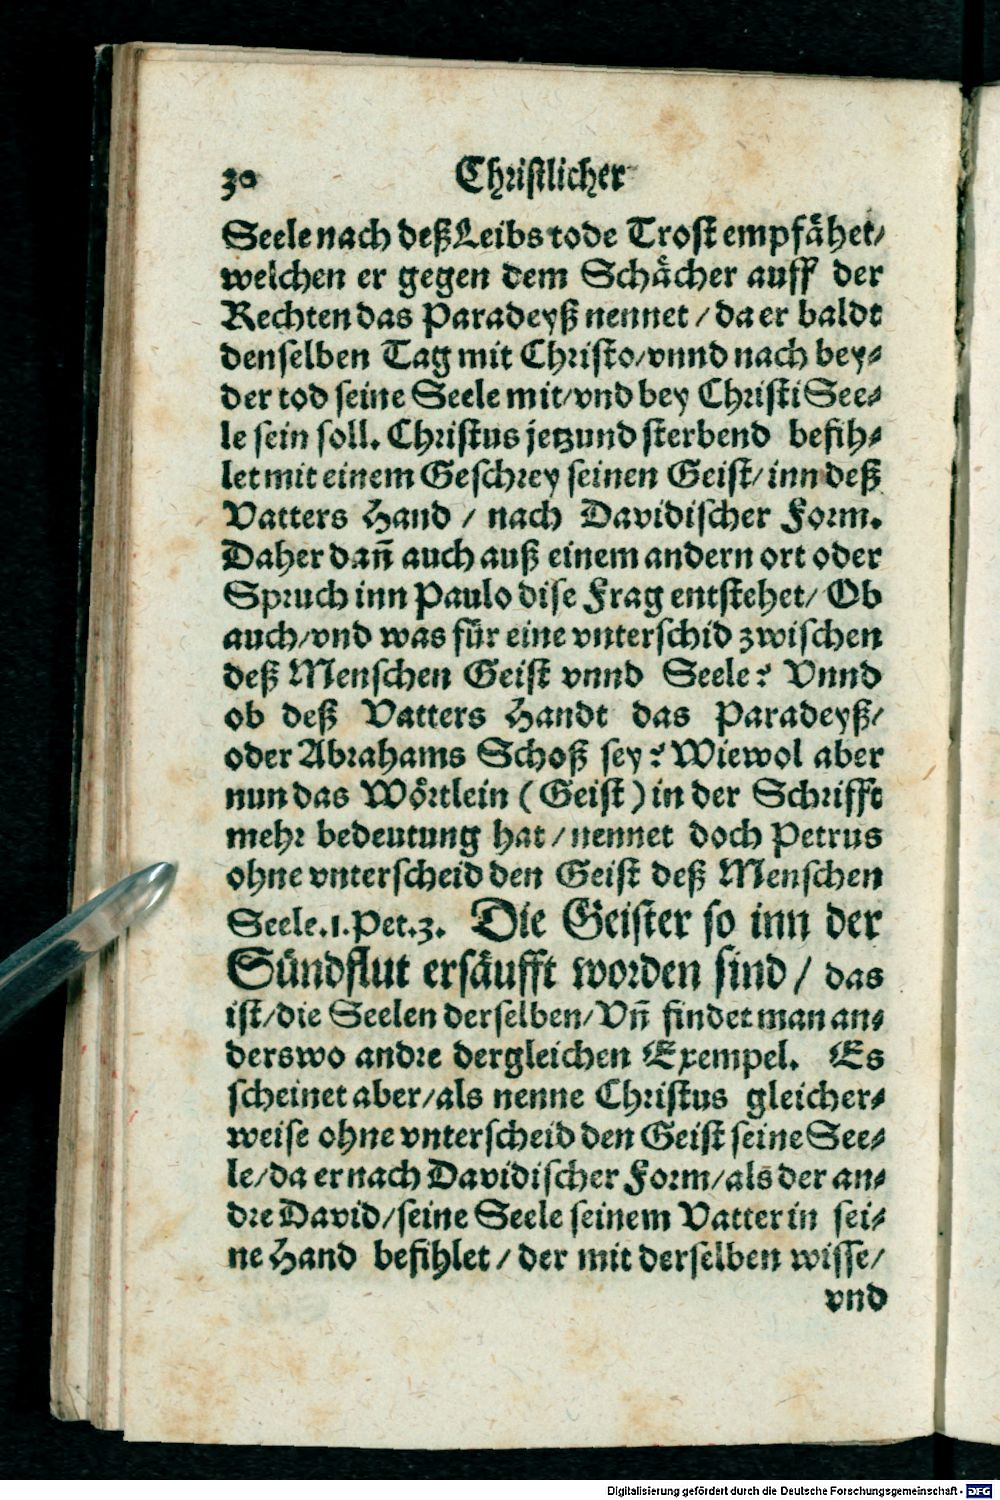 30 Christlicher
Seele nach deß Leibs tode Trost empfåhet/
welchen er gegen dem Schåcher auff der
Rechten das Paradeyß nennet / da er baldt
denselben Tag mit Christo/vnnd nach bey⸗
der tod seine Seele mit/vnd bey Christi See⸗
le sein soll. Christus jetzund sterbend befih⸗
let mit einem Geschrey seinen Geist/ inn deß
Vatters Hand / nach Davidischer Form.
Daher dañ auch auß einem andern ort oder
Spruch inn Paulo dise Frag entstehet/ Ob
auch/vnd was für eine vnterschid zwischen
deß Menschen Geist vnnd Seele? Vnnd
ob deß Vatters Handt das Paradeyß/
oder Abrahams Schoß sey? Wiewol aber
nun das Wörtlein (Geist) in der Schrifft
mehr bedeutung hat / nennet doch Petrus
ohne vnterscheid den Geist deß Menschen
Seele.1.Pet.3. Die Geister so inn der
Sündflut ersäufft worden sind / das
ist/die Seelen derselben/Vñ findet man an⸗
derswo andre dergleichen Exempel. Es
scheinet aber/als nenne Christus gleicher⸗
weise ohne vnterscheid den Geist seine See⸗
le/da er nach Davidischer Form/als der an⸗
dre David/seine Seele seinem Vatter in sei⸗
ne Hand befihlet / der mit derselben wisse/
vnd
Digitalisierung gefördert durch die Deutsche Forschungsgemeinschaft - DFG